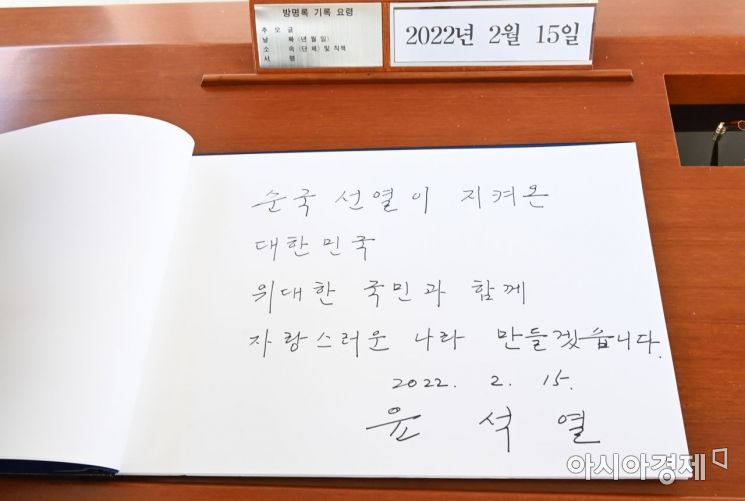 방명록 기록 요령
추 모 글
날 짜 (년 월 일)
소 속 (단 체) 및 직책
서 명
2022년 2월 15일
순국 선열이 지켜온
대한민국
위대한 국민과 함께
자랑스러운 나라 만들겠습니다.
2022. 2. 15.
윤 석 열
아시아경제